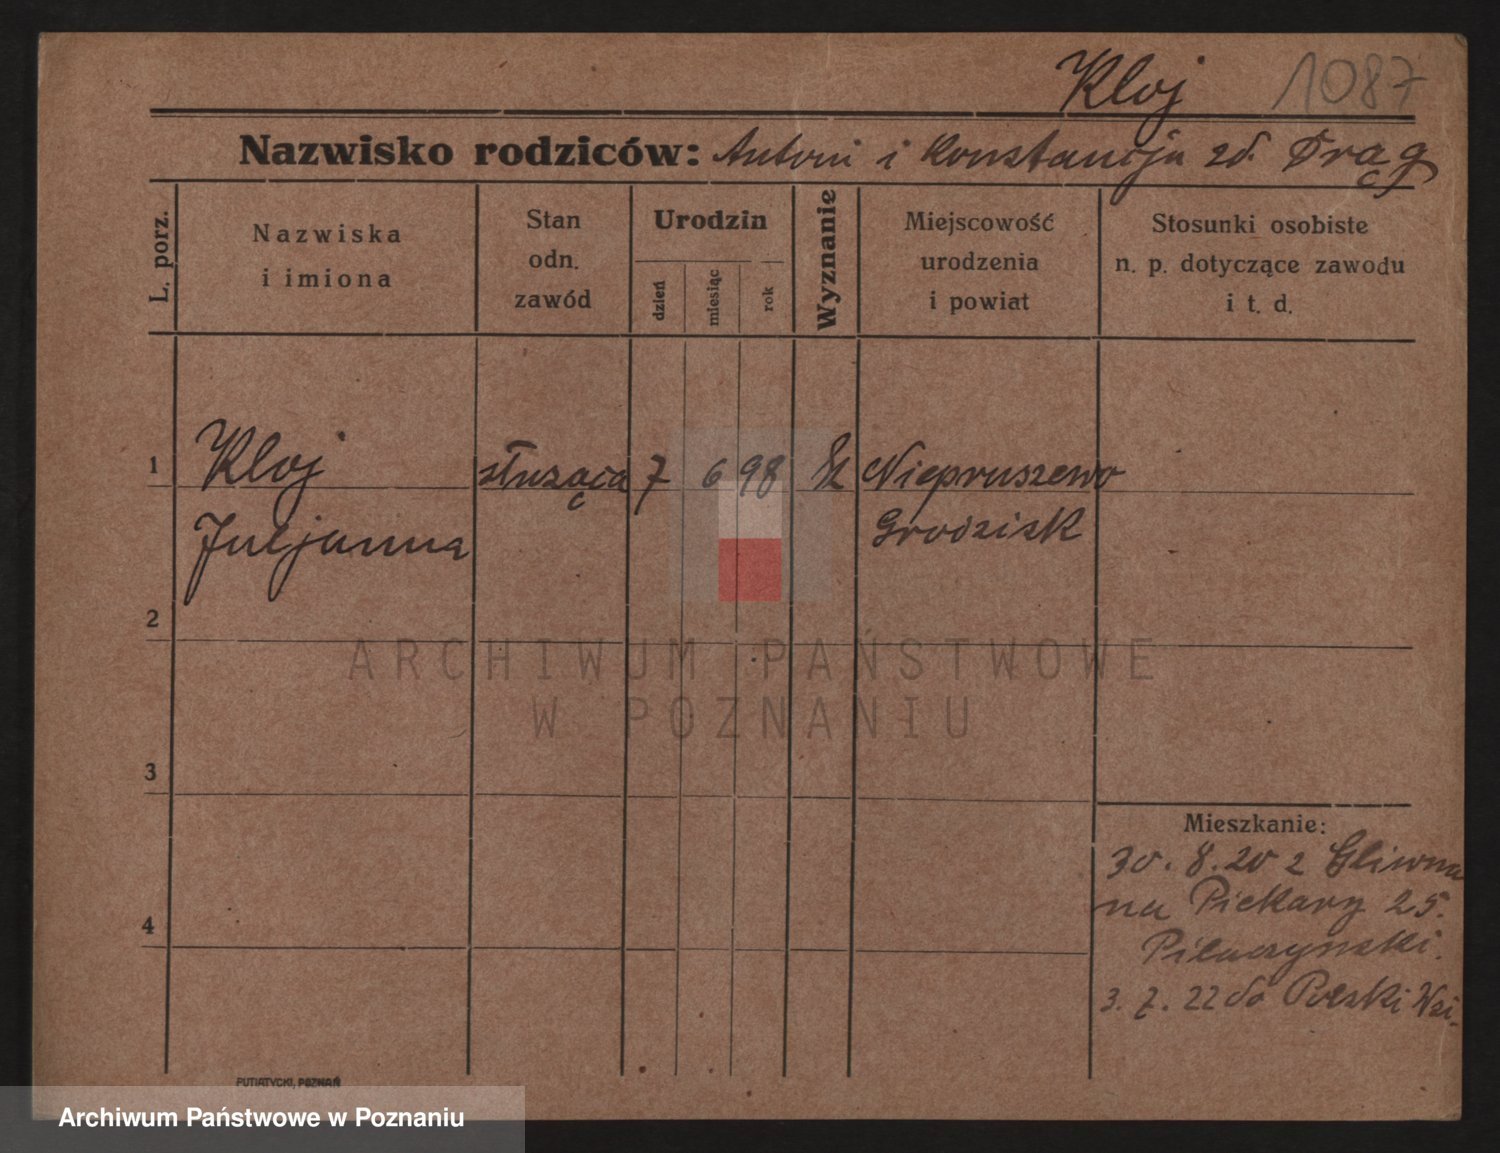 Kloj 1087
Nazwisko rodziców: Antoni i Konstancja zd. Drąg
L. porz.
Nazwiska
i imiona
Stan
odn.
zawód
Urodzin
dzień
miesiąc
rok
Wyznanie
Miejscowość
urodzenia
i powiat
Stosunki osobiste
n. p. dotyczące zawodu
i t. d.
1 Kloj służąca 7 6 98 Niepruszewo
Juljanna Grodzisk
2
ARCHIWUM PAŃSTWOWE
W POZNANIU
3
Mieszkanie:
30. 8. 20 z Gliwna
na Piekary 25.
4
3. 7. 22 do Polski Wsi
PUTIATYCKI, POZNAŃ
Archiwum Państwowe w Poznaniu